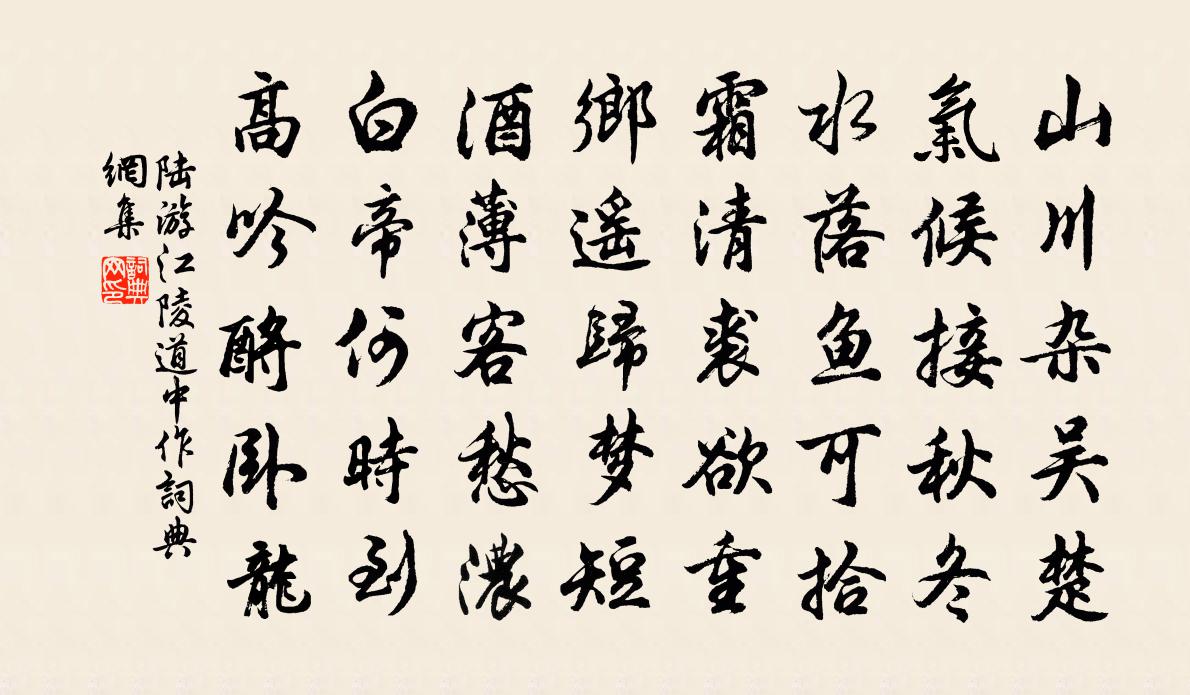 山川杂吴楚
氣候接秋冬
水落鱼可拾
霜清裘欲重
鄉遥歸梦短
酒薄客愁濃
白帝何時到
高吟酹卧龍
陆游江陵道中作詞典
網集
詞典
网印